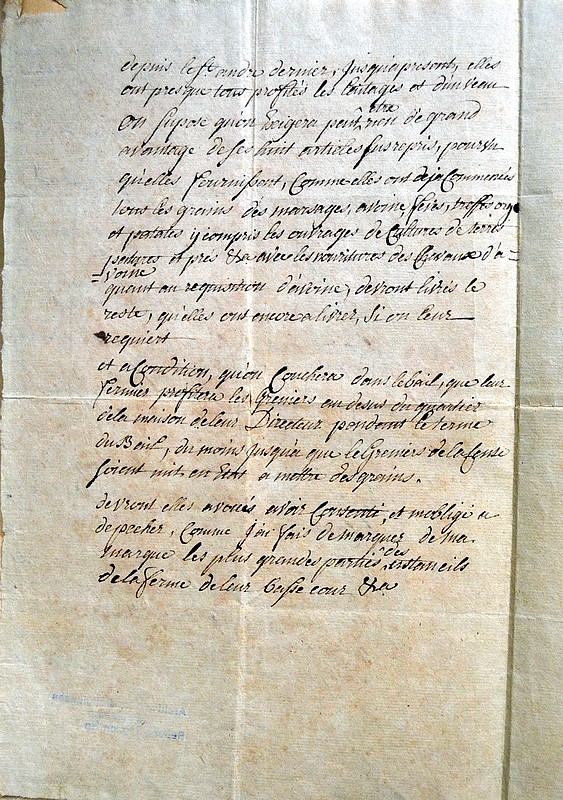 depuis le st andre dernier, Jusqu'a present, elles
ont presque tous profités les laitages et d'un veau
on supose qu'on exigera peut etre rien de grand
avantage de ses huit articles susrepris, pourvu
qu'elles fournissent, Comme elles ont deja Commencés
tous les grains des marsages, avoine, feves, troffes orge
et patates y compris les ouvrages de Cultures de terres
patures et prés &a avec les nouritures des Chevaux d'a=
=voine
quant au requisition d'avoine, devront livrés le
reste, qu'elles ont encore a livrer, Si on leur
requiert
et a Condition, qu'on Couchera dans le bail, que leur
fermier profitera les Greniers au desus du quartier
de la maison de leur Directeur pendant le terme
du Bail, du moins Jusqu'a que le Greniers de la Cense
soient mit en état a mettre des grains.
devront elles avoués avoir Consenti, et m'obligé a
depecher, Comme J'ai fais de marquer de ma
marque les plus grandes parties des ustancils
de la ferme de leur basse cour &a